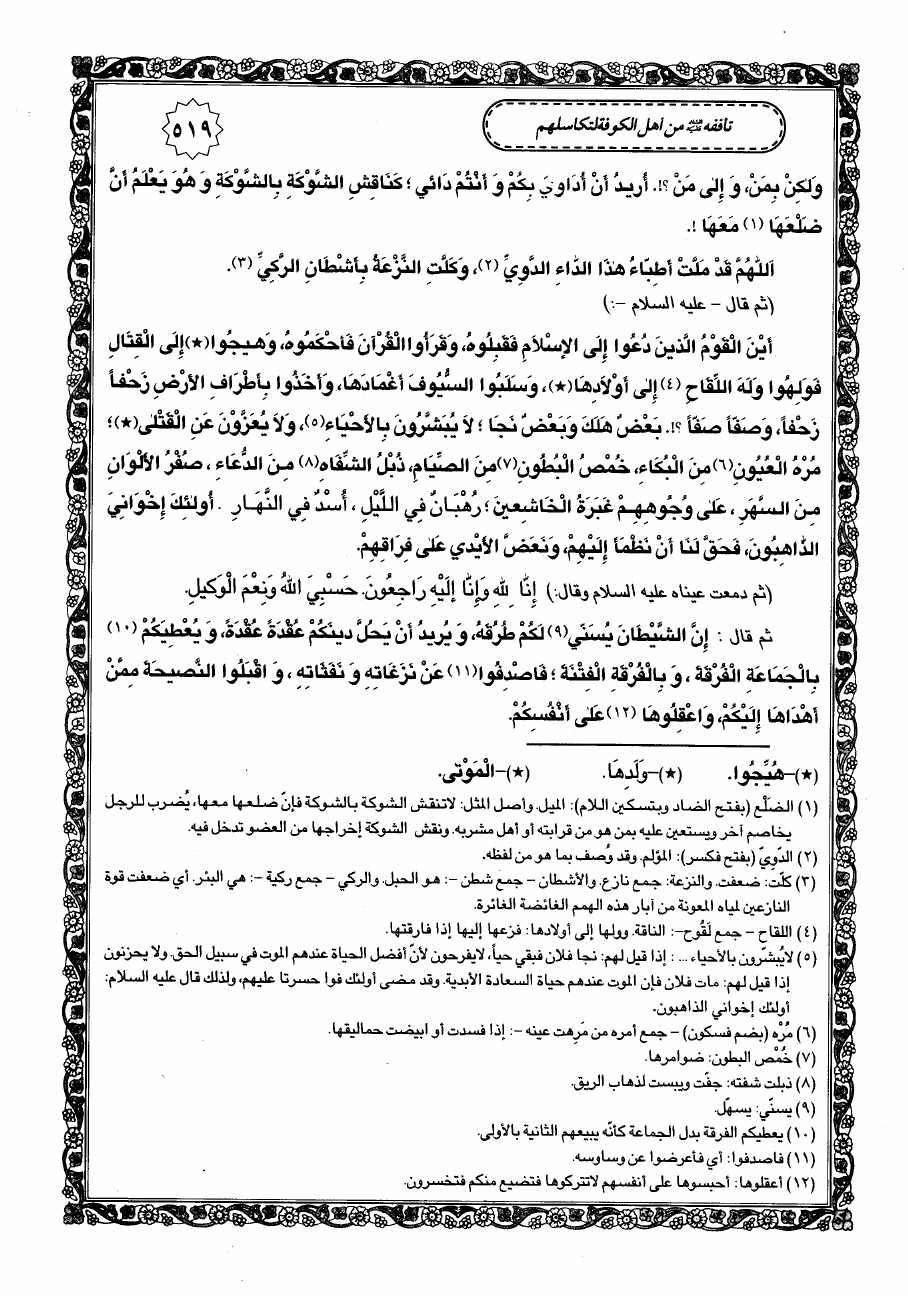 تأففه عليه السلام من أهل الكوفة لتكاسلهم
٥١٩
وَلكِنْ بِمَنْ، وَ إِلى مَنْ ؟!. أُرِيدُ أَنْ أُدَاوِيَ بِكُمْ وَ أَنْتُمْ دَائي ؛ كَنَاقِشِ الشَّوْكَةِ بِالشَّوْكَةِ وَ هُوَ يَعْلَمُ أَنَّ
ضَلْعَهَا (١) مَعَهَا !.
اَللّهُمَّ قَدْ مَلَّتْ أَطِبَّاءُ هذَا الدَّاءِ الدَّوِيِّ (٢)، وَكَلَّتِ النَّزْعَةُ بِأَشْطَانِ الرَّكِيِّ (٣).
(ثم قال – عليه السلام –:)
أَيْنَ الْقَوْمُ الَّذينَ دُعُوا إِلَى الإِسْلاَمِ فَقَبِلُوهُ، وَقَرَأُوا الْقُرْآنَ فَأَحْكَمُوهُ، وَهيجُوا(★)إِلَى الْقِتَالِ
فَوَلِهُوا وَلَهَ اللِّقَاحِ (٤) إِلى أَوْلاَدِهَا(★)، وَسَلَبُوا السُّيُوفَ أَغْمَادَهَا، وَأَخَذُوا بِأَطْرَافِ الأَرْضِ زَحْفاً
زَحْفاً، وَصَفّاً صَفّاً ؟!. بَعْضٌ هَلَكَ وَبَعْضٌ نَجَا ؛ لاَ يُبَشَّرُونَ بِالأَحْيَاءِ(٥)، وَلاَ يُعَزَّوْنَ عَنِ الْقَتْلى(★)؛
مُرْهُ الْعُيُونِ(٦)مِنَ الْبُكَاءِ، خُمْصُ الْبُطُونِ(٧)مِنَ الصِّيَامِ، ذُبْلُ الشِّفَاهِ(٨) مِنَ الدُّعَاءِ ، صُفْرُ الأَلْوَانِ
مِنَ السَّهَرِ ، عَلى وُجُوهِهِمْ غَبَرَةُ الْخَاشِعينَ ؛ رُهْبَانٌ فِي اللَّيْلِ ، أُسْدٌ فِي النَّهَارِ . أُولئِكَ إِخْوَانِيَ
الذَّاهِبُونَ، فَحَقَّ لَنَا أَنْ نَظْمَأَ إِلَيْهِمْ، وَنَعَضَّ الأَيْدي عَلى فِرَاقِهِمْ.
(ثم دمعت عيناه عليه السلام وقال:) إِنَّا لِلّهِ وَإِنَّا إِلَيْهِ رَاجِعُونَ. حَسْبِيَ اللهُ وَنِعْمَ الْوَكيلِ.
ثم قال : إِنَّ الشَّيْطَانَ يُسَنّي(٩) لَكُمْ طُرُقَهُ، وَ يُريدُ أَنْ يَحُلَّ دينَكُمْ عُقْدَةً عُقْدَةً، وَ يُعْطِيَكُمْ (١٠)
بِالْجَمَاعَةِ الْفُرْقَةَ ، وَ بِالْفُرْقَةِ الْفِتْنَةَ ؛ فَاصْدِفُوا(١١) عَنْ نَزَغَاتِهِ وَ نَفَثَاتِهِ ، وَ اقْبَلُوا النَّصيحَةَ مِمَّنْ
أَهْدَاهَا إِلَيْكُمْ، وَاعْقِلُوهَا (١٢) عَلى أَنْفُسِكُمْ.
(★)–هُيِّجُوا. (★)–وَلَدِهَا. (★)–الْمَوْتى.
(١) الضلْع (بفتح الضاد وبتسكين اللام): الميل. وأصل المثل: لاتنقش الشوكة بالشوكة فإنّ ضلعها معها، يُضرب للرجل
يخاصم آخر ويستعين عليه بمن هو من قرابته أو أهل مشربه. ونقش الشوكة إخراجها من العضو تدخل فيه.
(٢) الدّويّ (بفتح فكسر): المؤلم. وقد وُصف بما هو من لفظه.
(٣) كلّت: ضعفت. والنزعة: جمع نازع. والأشطان – جمع شطن –: هو الحبل. والركي – جمع ركية –: هي البئر. أي ضعفت قوة
النازعين لمياه المعونة من آبار هذه الهمم الغائضة الغائرة.
(٤) اللقاح – جمع لَقُوح–: الناقة. وولها إلى أولادها: فزعها إليها إذا فارقتها.
(٥) لايُبشّرون بالأحياء ... : إذا قيل لهم: نجا فلان فبقي حياً، لايفرحون لأنّ أفضل الحياة عندهم الموت في سبيل الحق. ولا يحزنون
إذا قيل لهم: مات فلان فإن الموت عندهم حياة السعادة الأبدية. وقد مضى أولئك فوا حسرتا عليهم، ولذلك قال عليه السلام:
أولئك إخواني الذاهبون.
(٦) مُرْه (بضم فسكون) – جمع أمره من مَرِهت عينه –: إذا فسدت أو ابيضت حماليقها.
(٧) خُمْص البطون: ضوامرها.
(٨) ذبلت شفته: جفّت ويبست لذهاب الريق.
(٩) يسنّي: يسهّل.
(١٠) يعطيكم الفرقة بدل الجماعة كأنّه يبيعهم الثانية بالأولى.
(١١) فاصدفوا: أي فأعرضوا عن وساوسه.
(١٢) أعقلوها: أحبسوها على أنفسهم لاتتركوها فتضيع منكم فتخسرون.